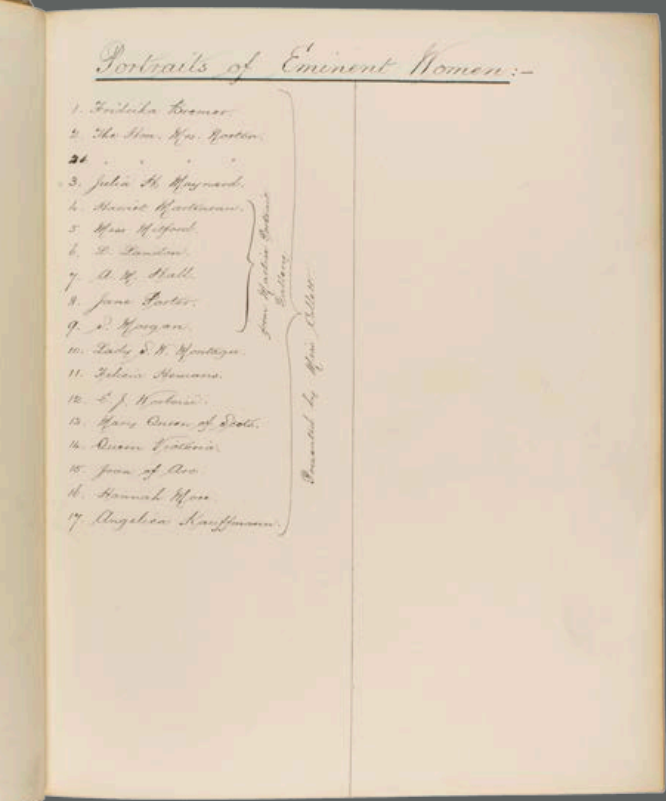 Portraits of Eminent Women:-
1. Fredrika Bremer.
2. The Hon. Mrs. Norton.
" " "
3. Julia H. Maynard.
4. Harriet Martineau.
5. Miss Mitford.
6. L. Landon.
7. A. M. Hall.
8. Jane Porter.
9. S. Morgan.
10. Lady M. W. Montagu.
11. Felicia Hemans.
12. E. J.
13. Mary Queen of Scots.
14. Queen Victoria.
15. Joan of Arc.
16. Hannah More.
17. Angelica Kauffmann.
from Maclise Portrait
Gallery
Presented by Miss Collett